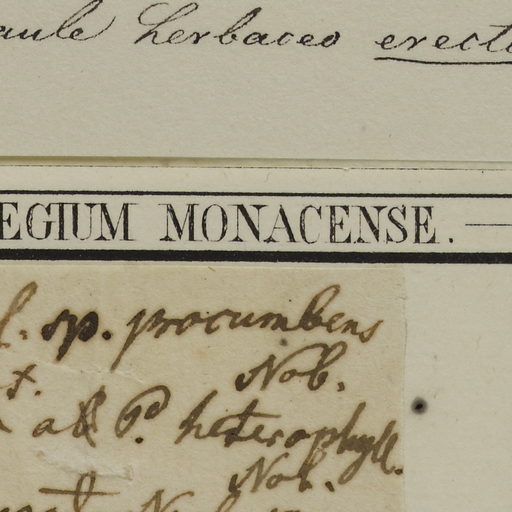 aule herbaceo erecto
EGIUM MONACENSE.
sp. procumbens
Nob.
heterophyll.
Nob.